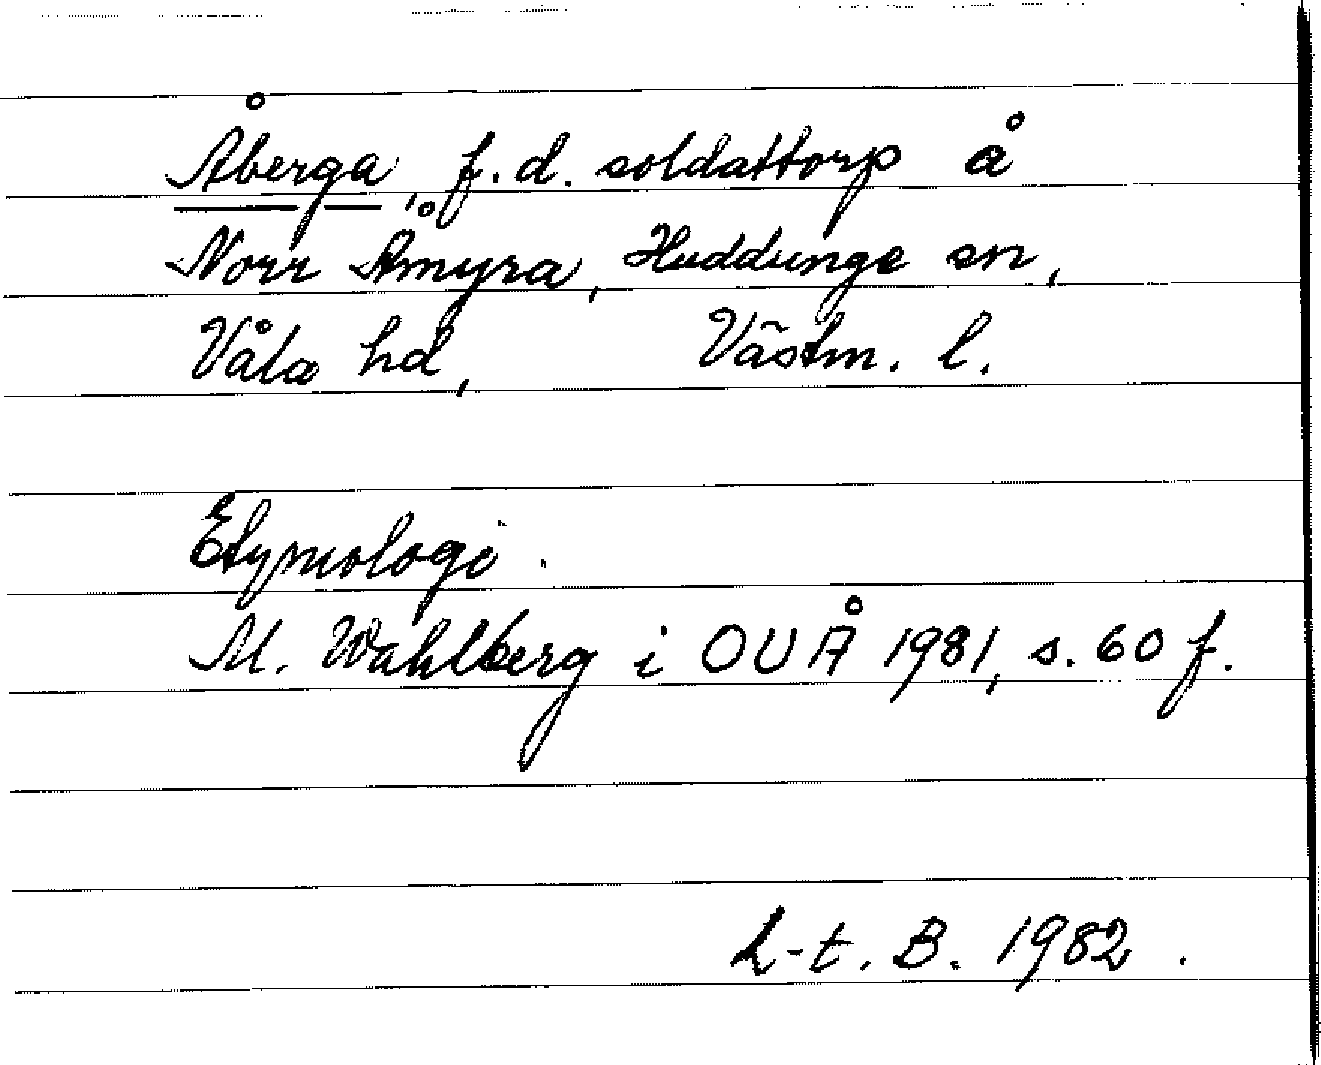 Åberga, f.d. soldattorp å
Norr Åmyra, Huddunge sn,
Våla hd, Västm. l.
Etymologi.
M. Wahlberg i OUÅ 1981, s. 60 f.
L-t. B. 1982.